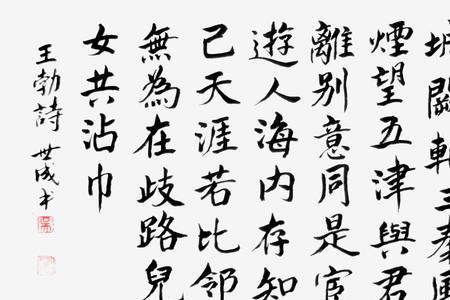 城闕輔三秦風
煙望五津與君
離别意同是宦
遊人海内存知
己天涯若比邻
無為在歧路兒
女共沾巾
王勃詩 世成书